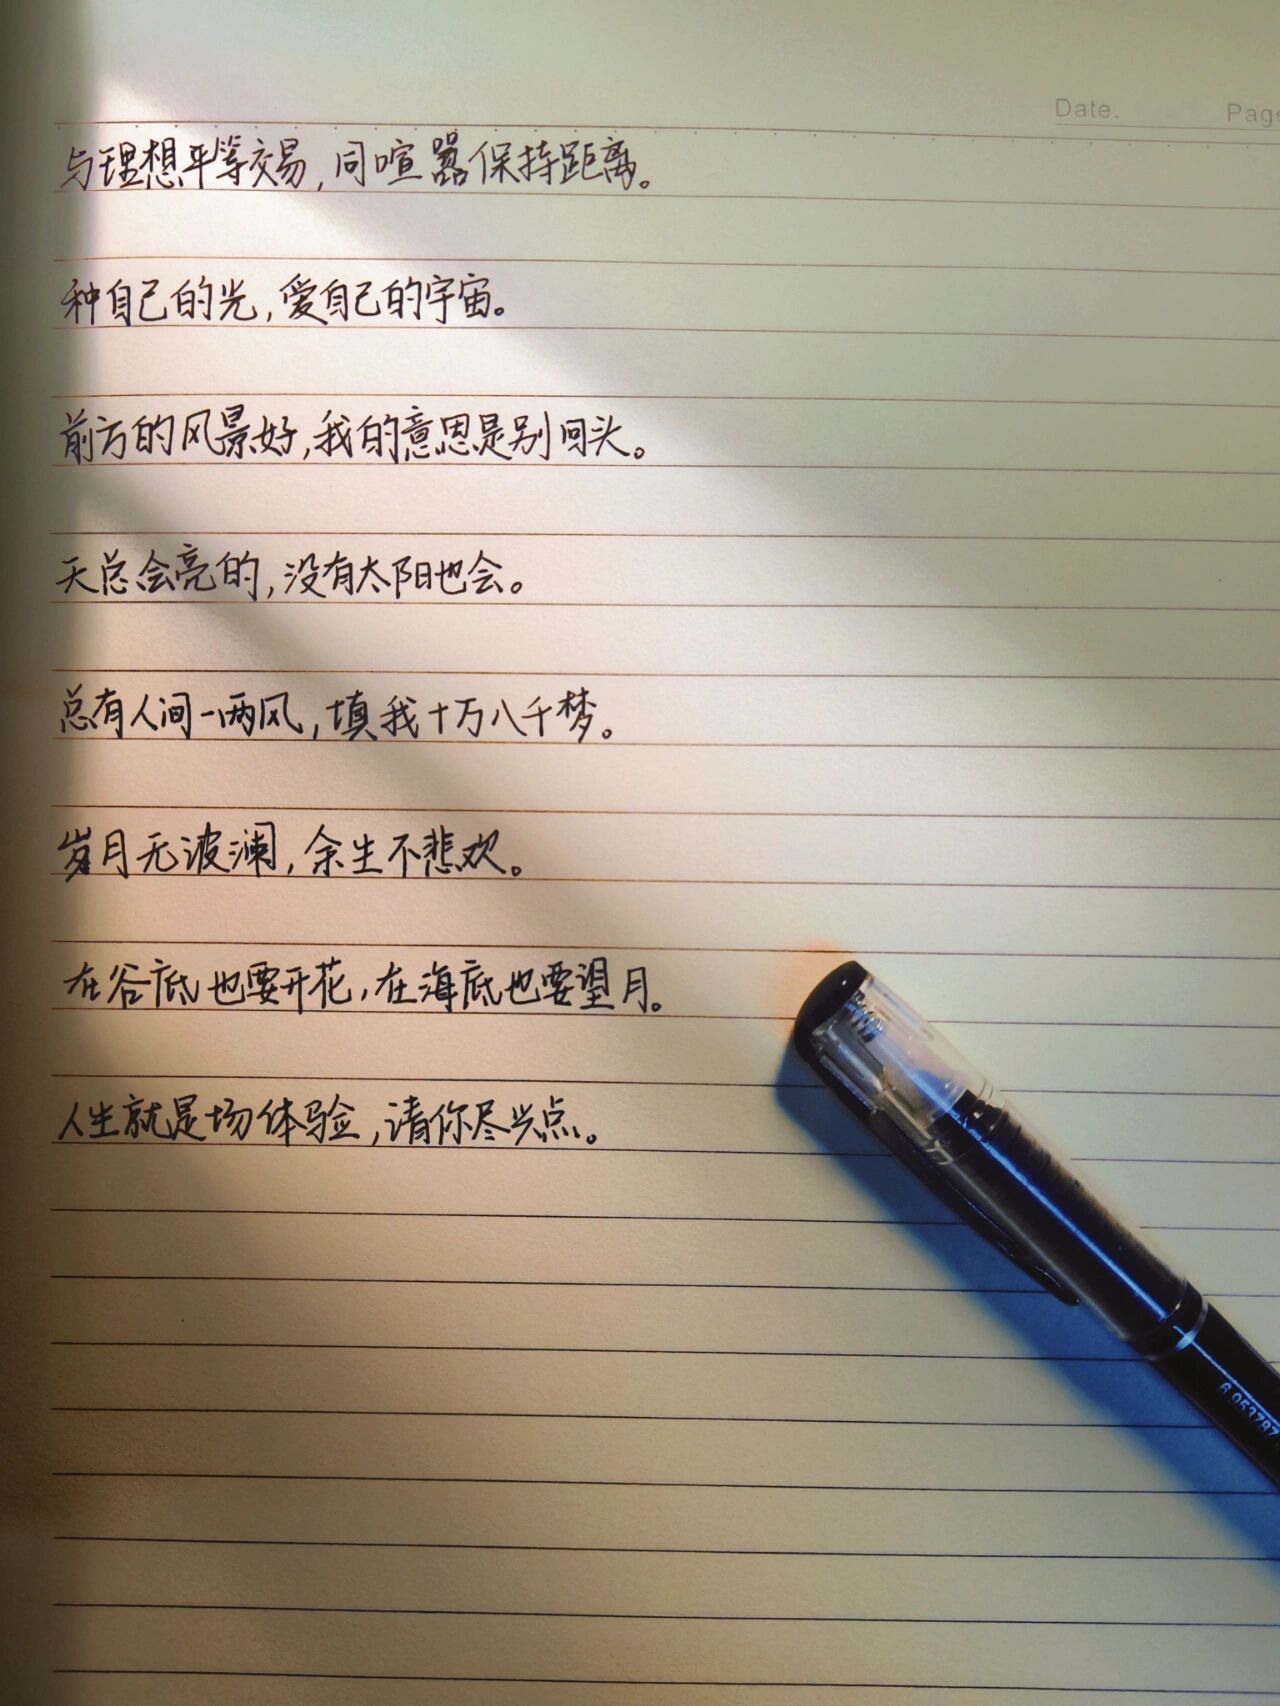 Date.
Page
与理想平等交易,同喧嚣保持距离。
种自己的光,爱自己的宇宙。
前方的风景好,我的意思是别回头。
天总会亮的,没有太阳也会。
总有人间一两风,填我十万八千梦。
岁月无波澜,余生不悲欢。
在谷底也要开花,在海底也要望月。
人生就是场体验,请你尽兴点。
6 953787